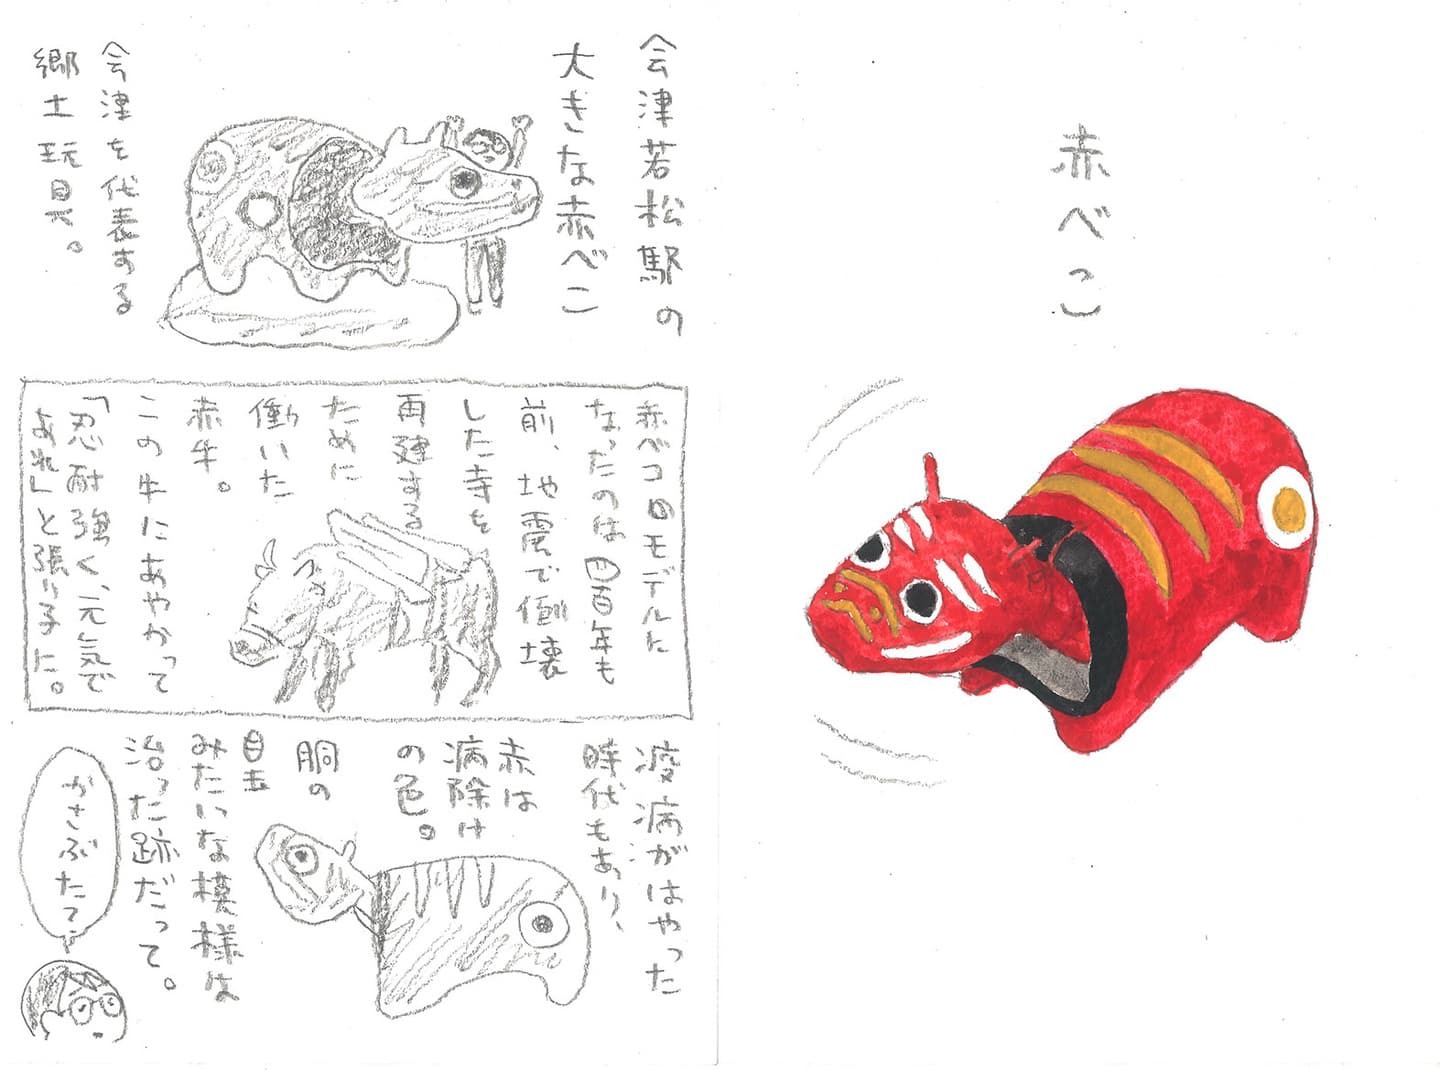 赤べこ
会津若松駅の
大きな赤べこ
会津を代表する
郷土玩具。
赤ベコのモデルに
なったのは四百年も
前、地震で倒壊
した寺を
再建する
ために
働いた
赤牛。
この牛にあやかって
「忍耐強く、元気で
あれ」と張り子に。
疫病がはやった
時代もあり、
赤は
病除け
の色。
胴の
目玉
みたいな模様は
治った跡だって。
かさぶた?